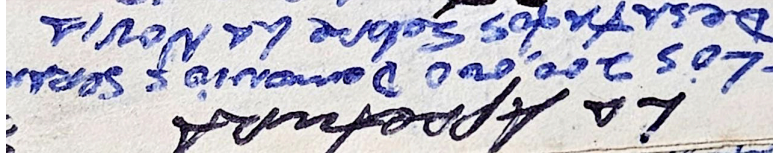 La Apretura
-Los 200,000 Demonios seran
Desatados Sobre La Novia